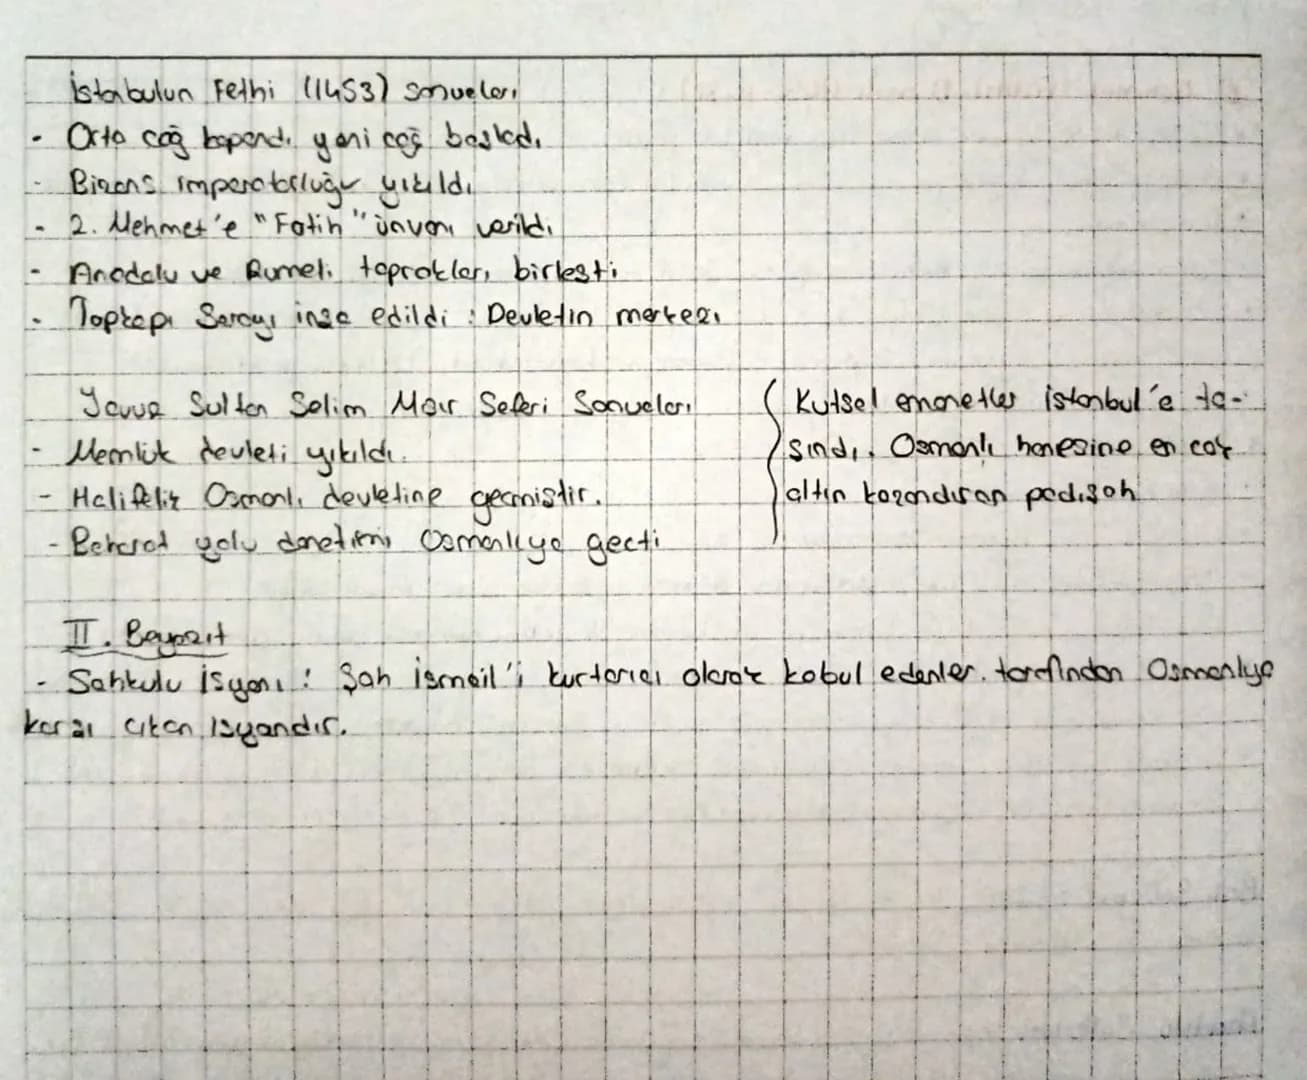 İstabulun Fethi (1453) sonucları
- Orta çağ kapandı yeni çağ başladı
- Bizans imparatorluğu yıkıldı
- 2. Mehmet'e "Fatih" ünvanı verildi
- Anadolu ve Rumeli toprakları birleşti
- Topkapı Sarayı inşa edildi : Devletin merkezi
Yavuz Sultan Selim Mısır Seferi Sonucları
- Memlük devleti yıkıldı.
- Halifelik Osmanlı devletine geçmiştir.
- Baharat yolu denetimi Osmanlıya geçti
Kutsal emanetler İstanbul'a ta-
şındı. Osmanlı hanesine en çok
altın kazandıran padişah
II. Beyazıt
- Şahkulu İsyanı : Şah İsmail'i kurtarıcı olarak kabul edenler tarafından Osmanlıya
karşı çıkan isyandır.